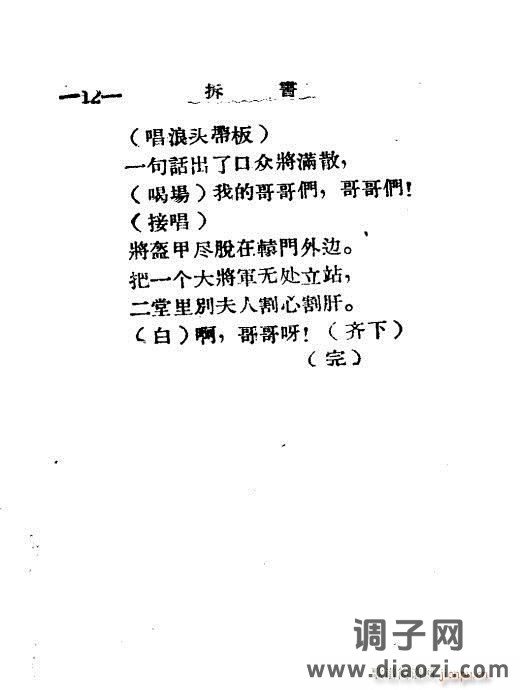 —12— 拆書
（唱浪头帶板）
一句話出了口众將滿散，
（喝場）我的哥哥們，哥哥們！
（接唱）
將盔甲尽脫在轅門外边。
把一个大將軍无处立站，
二堂里別夫人割心割肝。
（白）啊，哥哥呀！（齐下）
（完）
调子网
www.diaozi.com